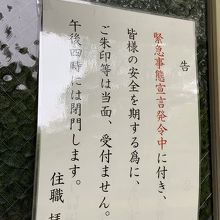 告
緊急事態宣言発令中に付き、
皆様の安全を期する為に、
ご朱印等は当面、受付ません。
午後四時には閉門します。
住職